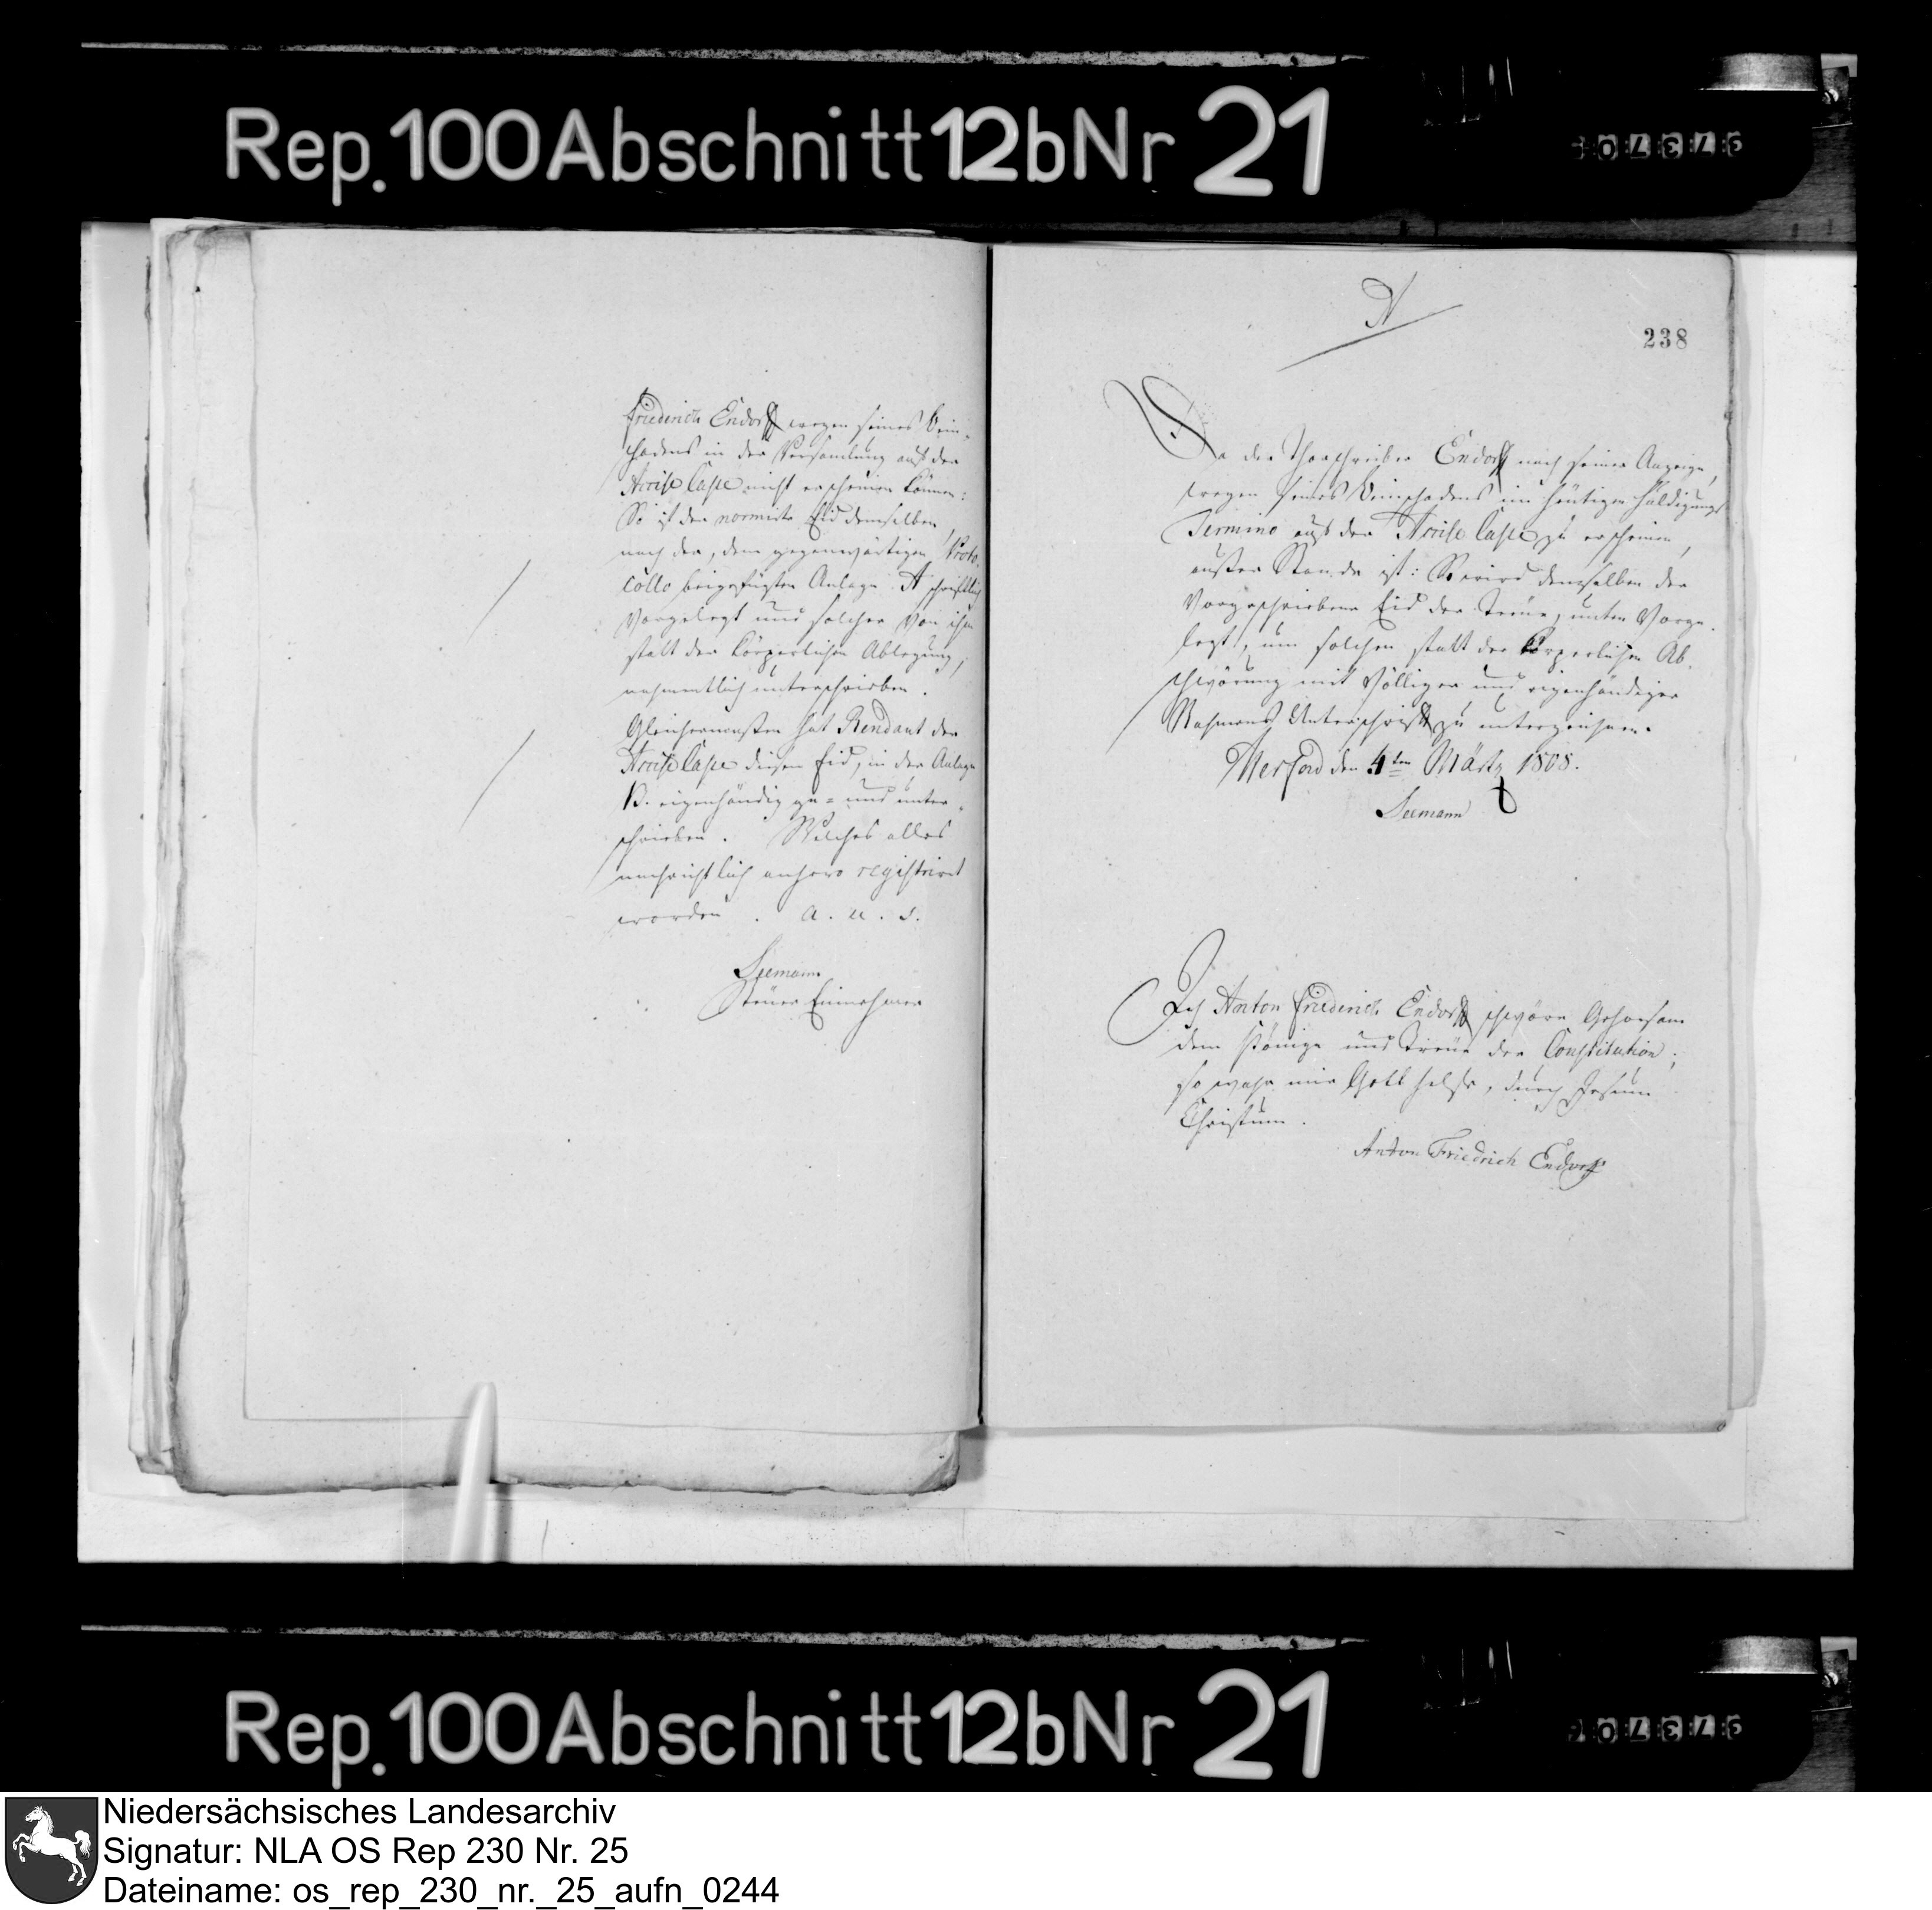 Rep. 100 Abschnitt 12b Nr 21
Friederich Endorff wegen seines Bein-
schadens in der Versamlung auf der
Accise Casse nicht erscheinen können:
So ist der normirte Eid demselben,
nach der, dem gegenwärtigen Proto-
collo beigefügten Anlage A schriftlich
Vorgelegt und solcher von ihm
statt der körperlichen Ablegung,
nahmentlich unterschrieben.
Gleichermaßen hat Rendant der
Accise Casse diesen Eid, in der Anlage
B. eigenhändig ge= und unter-
schrieben. Welches alles
nachrichtlich anhero registriret
worden. a. u. s.
Seemann
Steuer Einnehmer
A
238
Da der Thorschreiber Endorff nach seiner Anzeige,
wegen seines Beinschadens im heutigen Huldigungs
Termino auf der Accise Casse zu erscheinen,
außer Stande ist: So wird demselben der
Vorgeschriebene Eid der Treue, unten Vorge-
legt, um solchen statt der körperlichen Ab-
schwörung mit völliger und eigenhändiger
Nahmens Unterschrift zu unterzeichnen.
Herford den 4ten Märtz 1808.
Seemann
Ich Anton Friederich Endorff schwöre Gehorsam
dem Könige und Treue der Constitution;
so wahr mir Gott helfe, durch Jesum
Christum.
Anton Friedrich Endorff
Rep. 100 Abschnitt 12b Nr 21
Niedersächsisches Landesarchiv
Signatur: NLA OS Rep 230 Nr. 25
Dateiname: os_rep_230_nr._25_aufn_0244